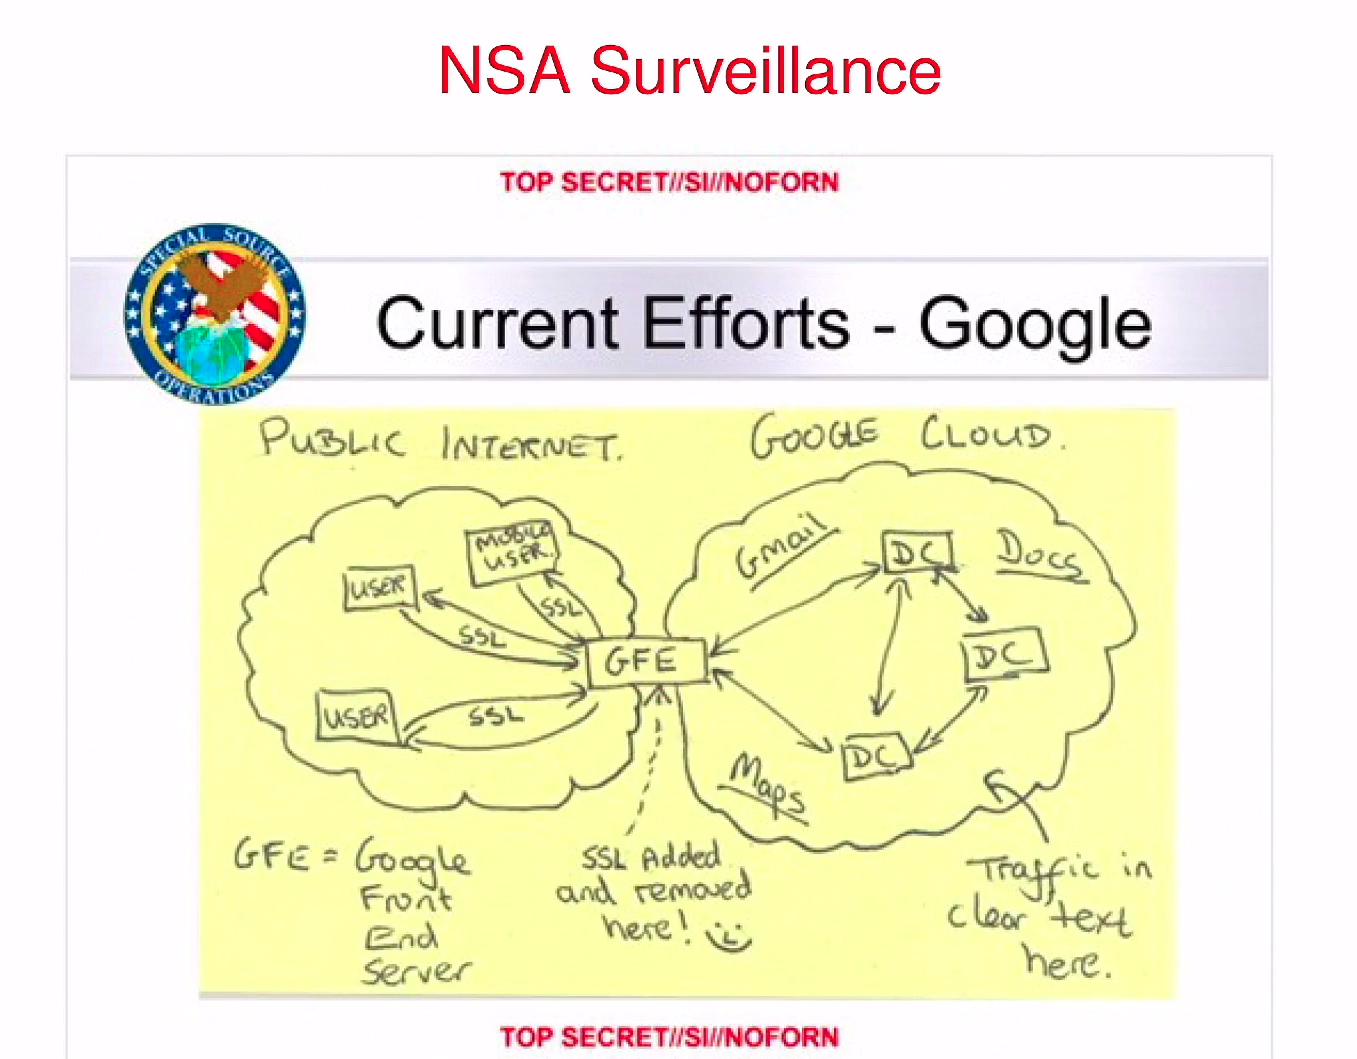 NSA Surveillance
TOP SECRET//SI//NOFORN
SPECIAL SOURCE
OPERATIONS
Current Efforts - Google
PUBLIC INTERNET.
GOOGLE CLOUD.
Gmail
DC
Docs
MOBILE
USER.
USER
SSL
SSL
GFE
DC
USER
SSL
DC
Maps
GFE = Google
Front
End
Server
SSL Added
and removed
here!
Traffic in
clear text
here.
TOP SECRET//SI//NOFORN